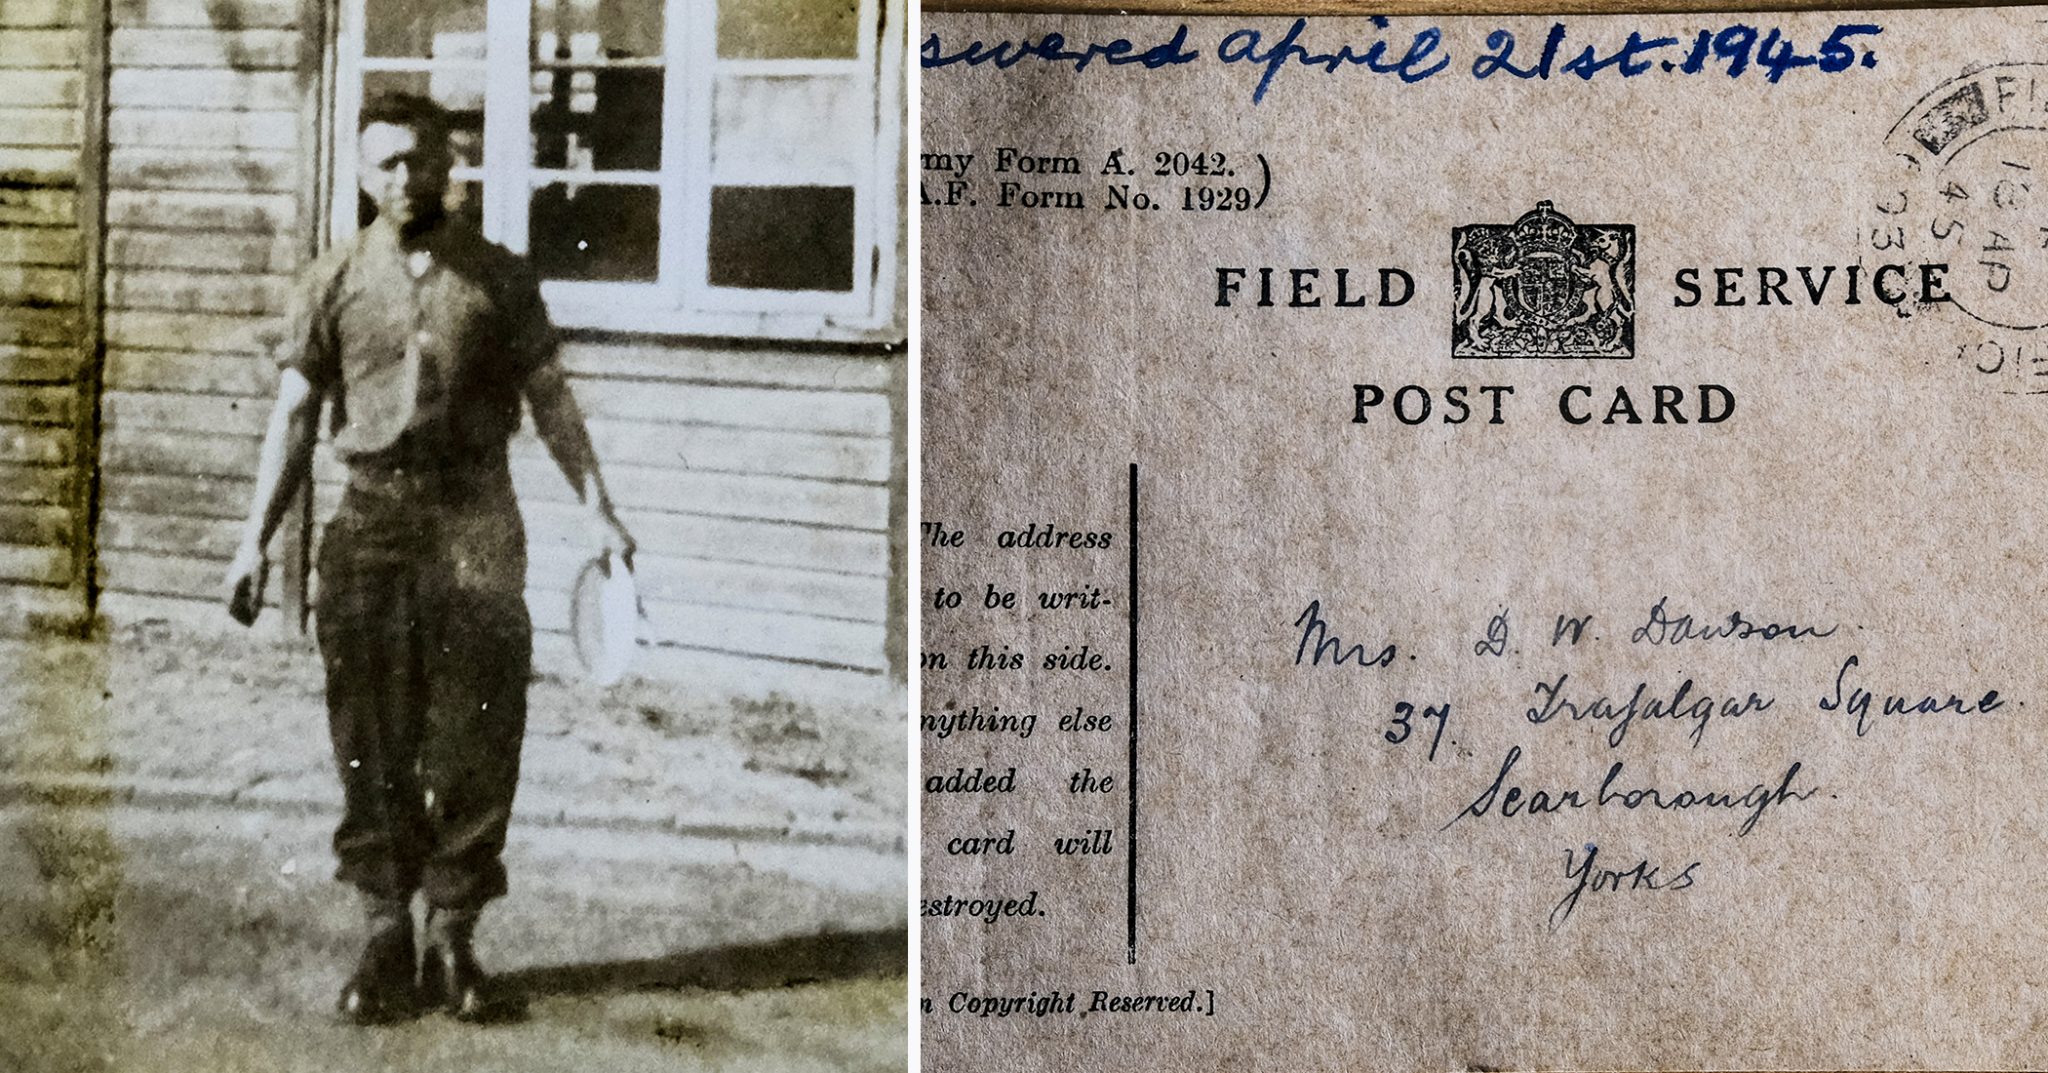 swered april 21st. 1945.
rmy Form A. 2042.
A.F. Form No. 1929)
FIELD SERVICE
POST CARD
The address
to be writ-
on this side.
nything else
added the
card will
estroyed.
n Copyright Reserved.]
Mrs. D. W. Dawson.
37 Trafalgar Square.
Scarborough.
Yorks
18 AP
45